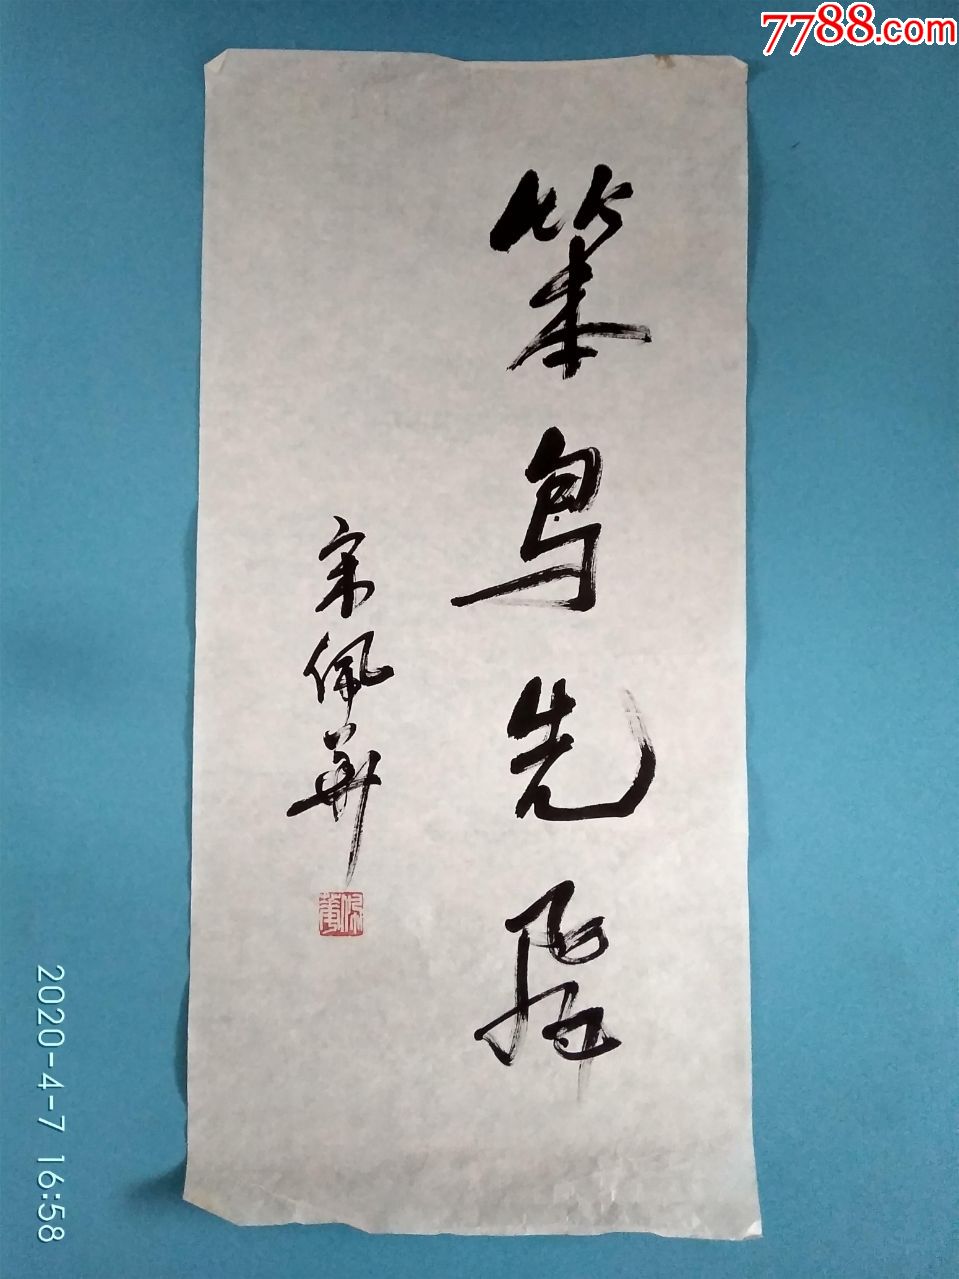 7788.com
笨鳥先飛
宋佩華
2020-4-7 16:58